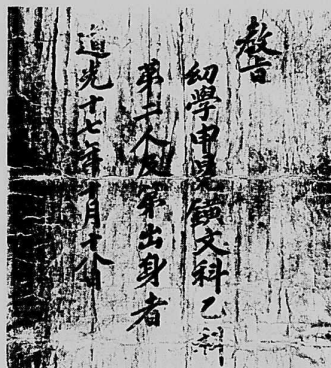 教旨
幼學申文科乙科
第二人及第出身者
道光十七年十月十八日